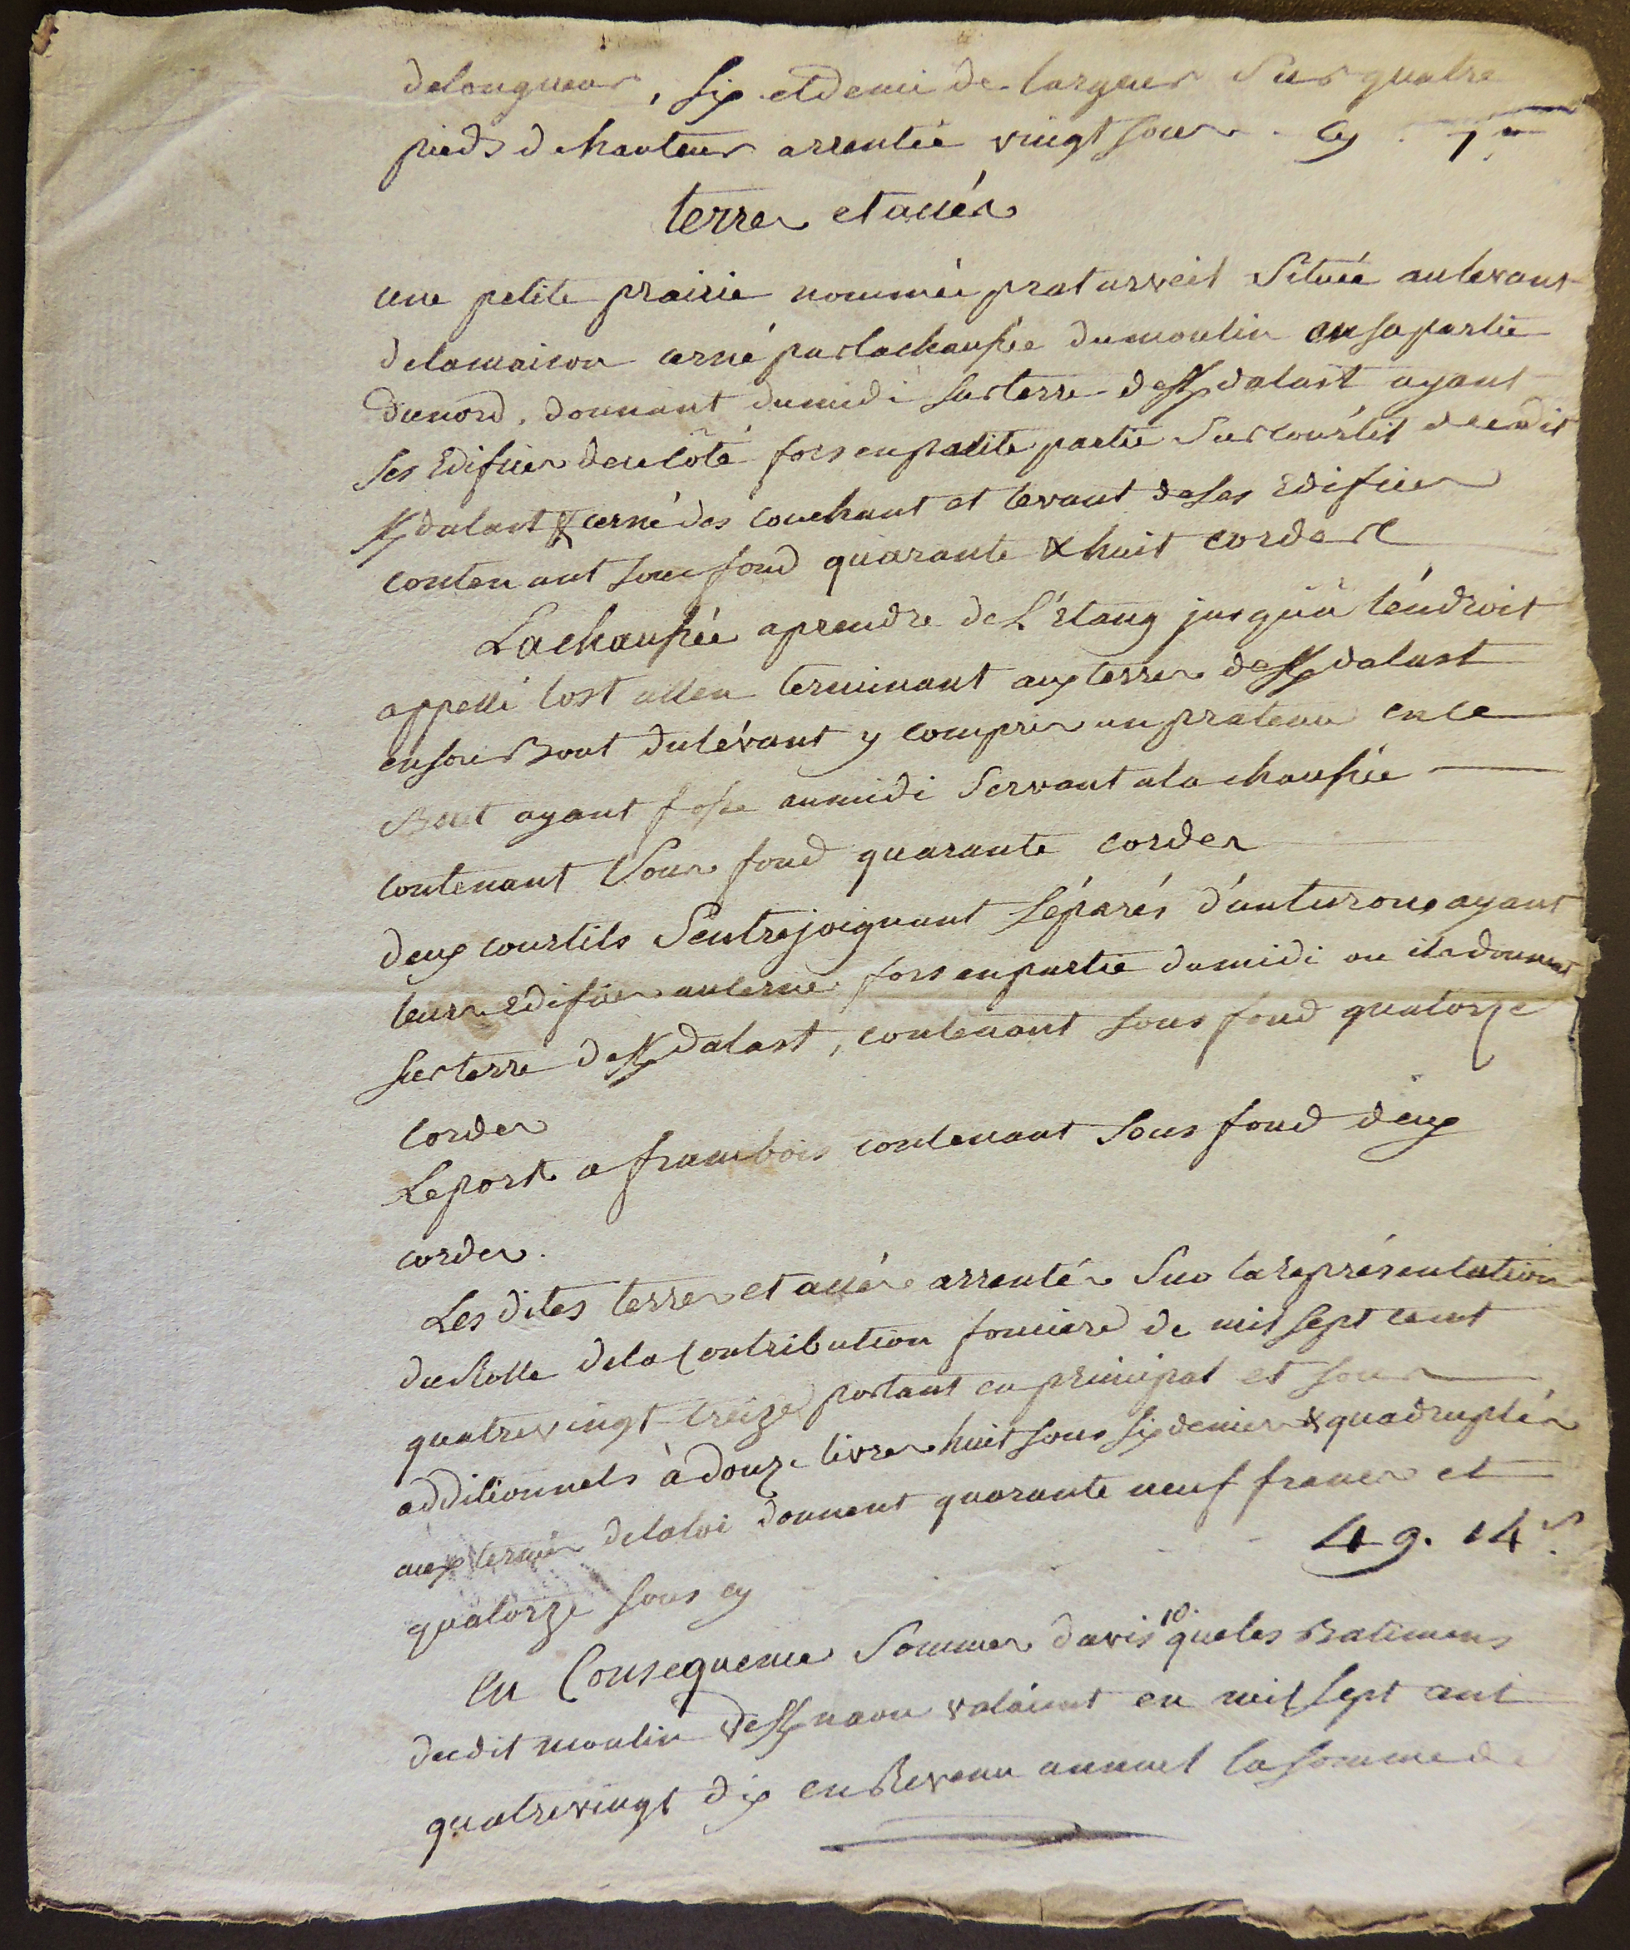 de longueur, six et demi de largeur Sur quatre
pieds de hauteur arrentée vingt sous . cy . 1ᵗᵗ
terres et accés
une petite prairie nommée prat arveil Située au levant
de la maison cerné par la chaussée du moulin en sa partie
du nord, donnant du midi sur terre de K/dalast ayant
ses Edifices de ce côté fors en petite partie Sur courtil dudit
K/dalast & cerné des couchant et levant de ses Edifices
contenant sous fond quarante & huit cordes
La chaussée a prendre de L'Etang jusqu'à l'éndroit
appellé lost allen terminant aux terres de K/dalast
en son Bout du lévant y compris un prateau en ce
Bout ayant fosse au midi Servant a la chaussée
contenant Sous fond quarante cordes
deux courtils S'entrejoignant Séparés d'un turon ayant
leurs Edifices au cerne fors en partie du midi ou ils donnent
sur terre de K/dalast, contenant sous fond quatorze
cordes
Le port a franc bois contenant Sous fond deux
cordes.
Les dites terres et accés arrentés Sur la représentation
du Rolle de la Contribution fonciere de mil sept cent
quatrevingt treize portant en principal et sous
additionnels à douze livres huit sous six deniers & quadruplés
aux termes de la loi donnent quarante neuf francs et
quatorze sous cy - - - 49. 14ˢ.
En Consequence Sommes d'avis 1°. que les Batimens
dudit moulin de K/naou valoient en mil sept cent
quatrevingt dix en Revenu annuel la somme de